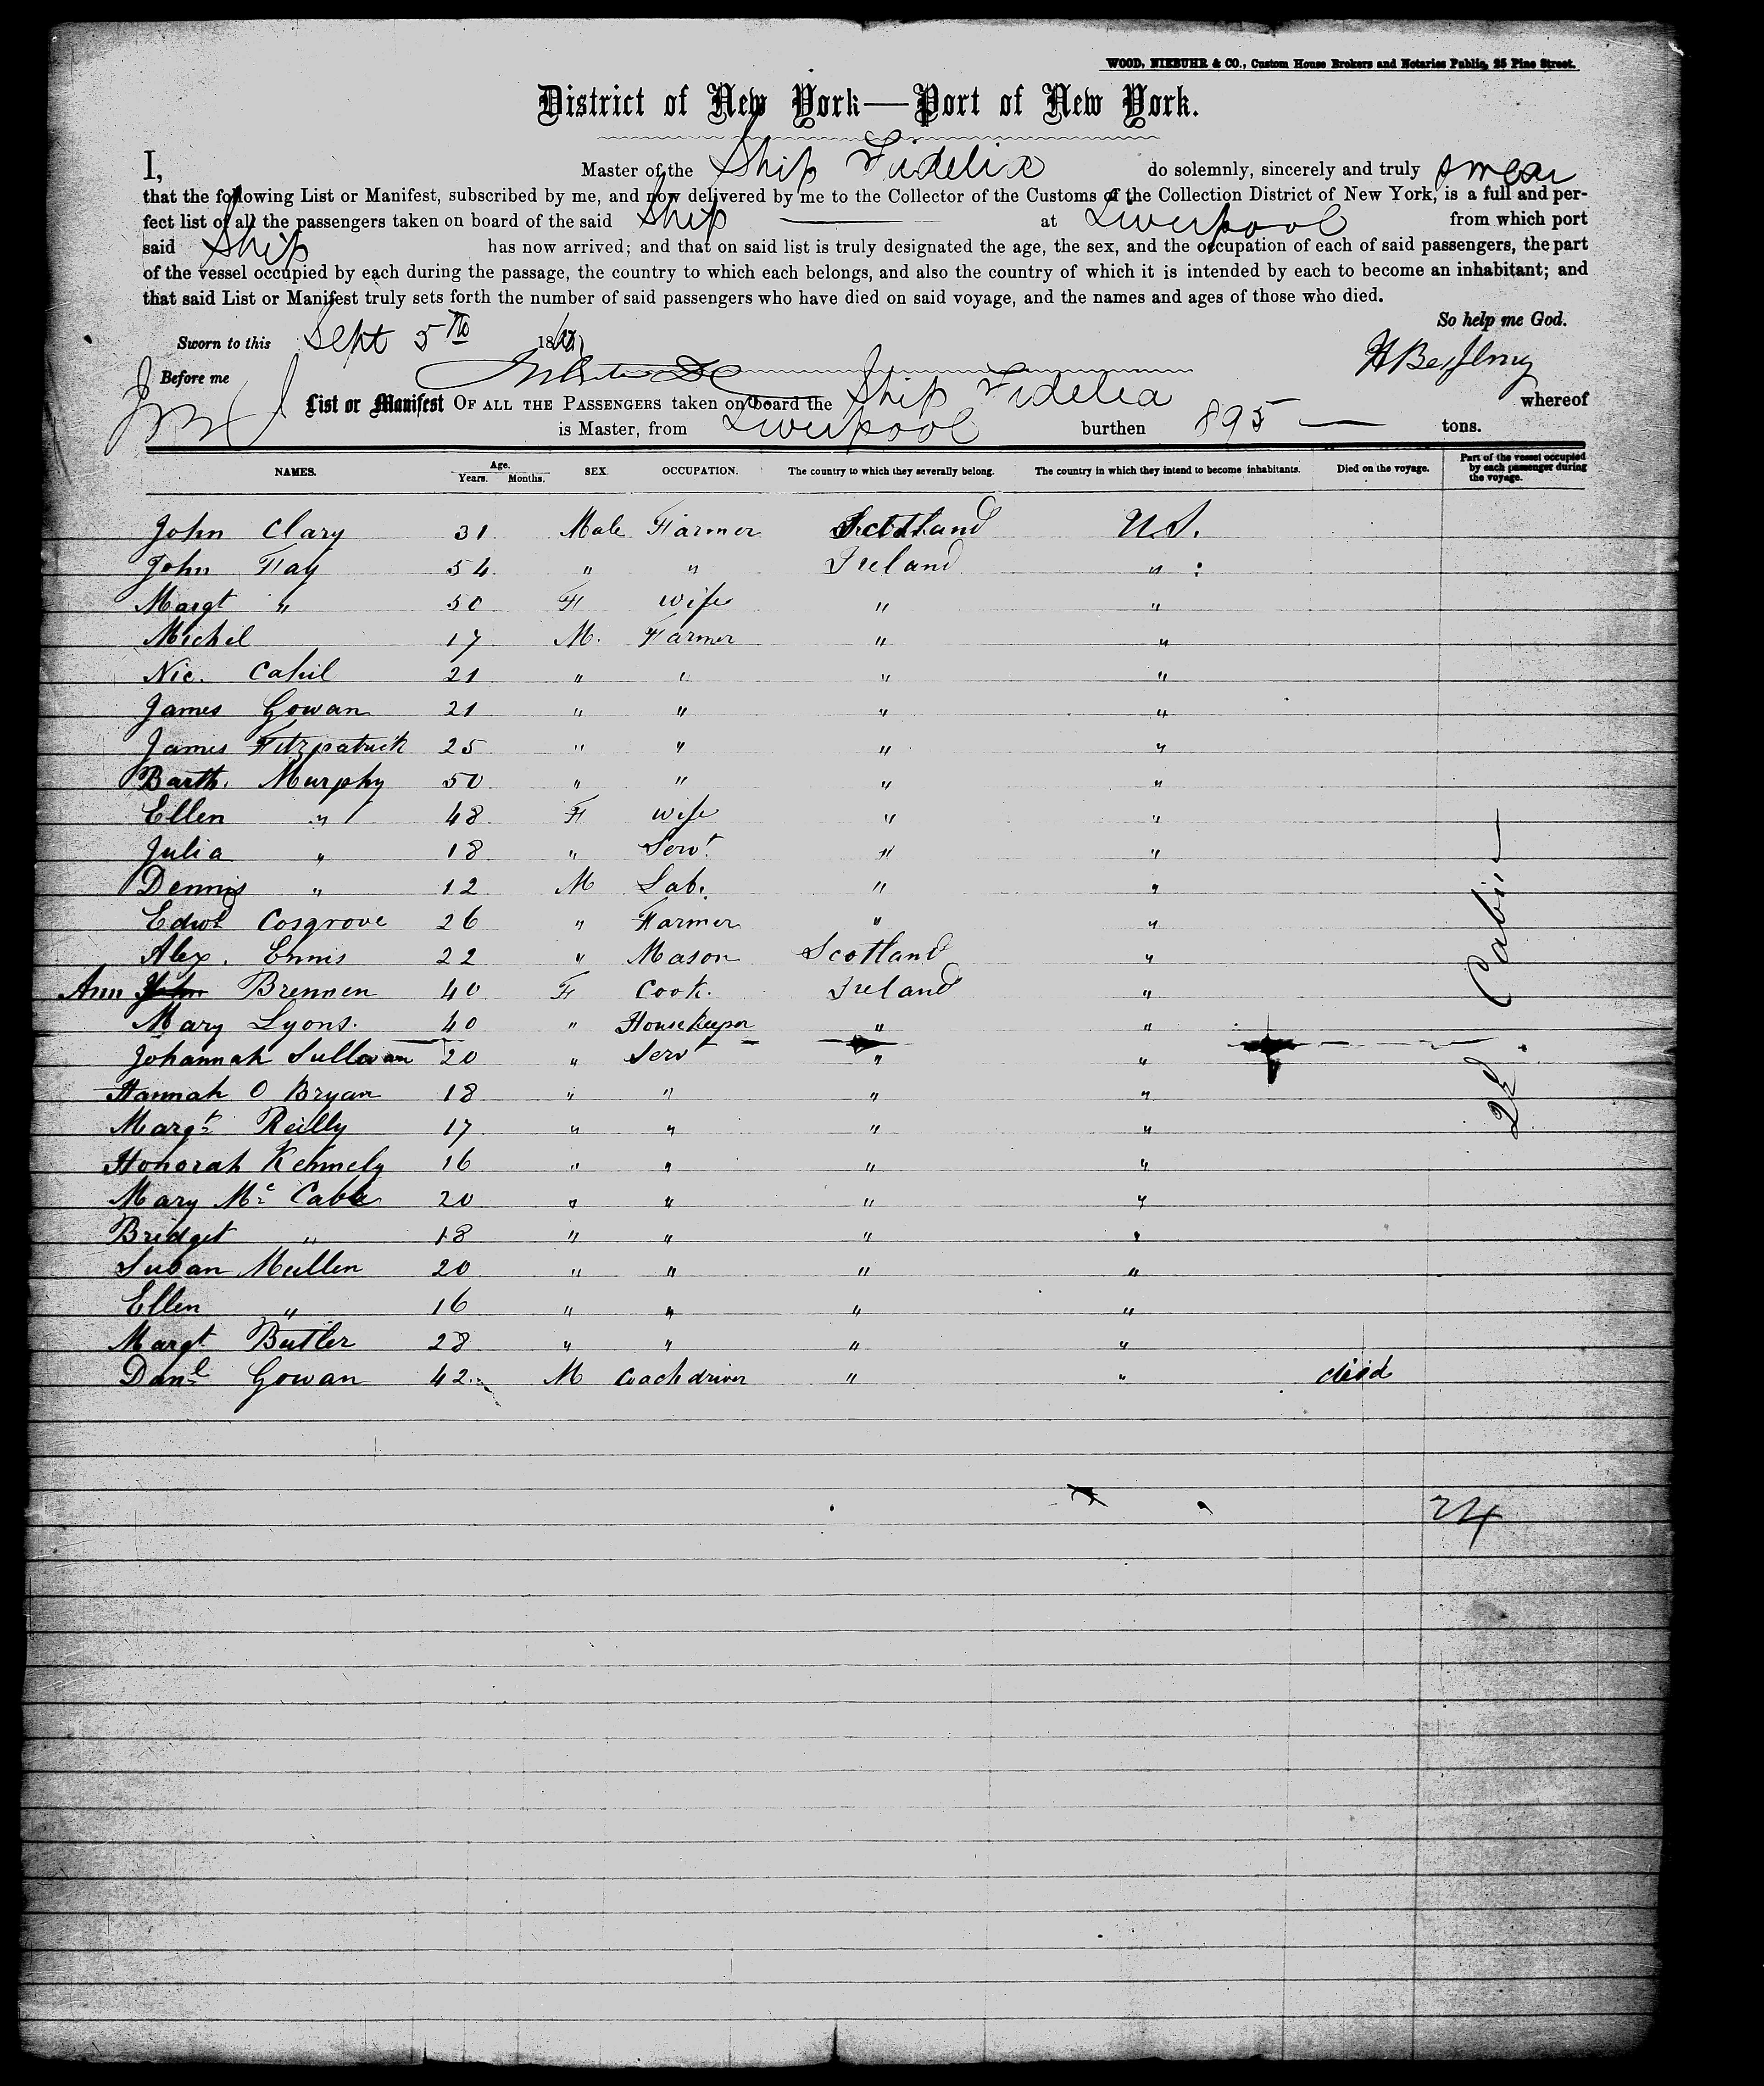 WOOD, NIEBUHR & CO., Custom House Brokers and Notaries Public, 25 Pine Street.
District of New York—Port of New York.
I, Master of the Ship Fidelia do solemnly, sincerely and truly swear
that the following List or Manifest, subscribed by me, and now delivered by me to the Collector of the Customs of the Collection District of New York, is a full and per-
fect list of all the passengers taken on board of the said Ship — at Liverpool from which port
said Ship has now arrived; and that on said list is truly designated the age, the sex, and the occupation of each of said passengers, the part
of the vessel occupied by each during the passage, the country to which each belongs, and also the country of which it is intended by each to become an inhabitant; and
that said List or Manifest truly sets forth the number of said passengers who have died on said voyage, and the names and ages of those who died.
So help me God.
Sworn to this Sept 5th 18
Before me
List or Manifest OF ALL THE PASSENGERS taken on board the Ship Fidelia whereof
is Master, from Liverpool burthen 895 — tons.
NAMES. Age. Years. Months. SEX. OCCUPATION. The country to which they severally belong. The country in which they intend to become inhabitants. Died on the voyage. Part of the vessel occupied by each passenger during the voyage.
John Clary 31 Male Farmer Scotland U.S.
John Fay 54 " " Ireland " :
Margt " 50 F wife " "
Michel 17 M. Farmer " "
Nic. Cahil 21 " " " "
James Gowan 21 " " " "
James Fitzpatrick 25 " " " "
Barth. Murphy 50 " " " "
Ellen " 48 F wife " "
Julia " 18 " Servt. " "
Dennis " 12 M Lab. " "
Edwd Cosgrove 26 " Farmer " "
Alex. Ennis 22 " Mason Scotland "
Ann John Brennen 40 F Cook. Ireland "
Mary Lyons. 40 " Housekeeper " "
Johannah Sullivan 20 " Servt " "
Hannah O Bryan 18 " " " "
Margt Reilly 17 " " " "
Honorah Kennely 16 " " " "
Mary Mc Cabe 20 " " " "
Bridget " 18 " " " "
Susan Mullen 20 " " " "
Ellen " 16 " " " "
Margt Butler 28 " " " "
Danl Gowan 42 M Coach driver " " died
2d Cabin
24